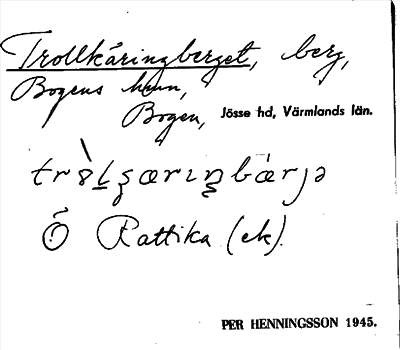 Trollkäringberget, berg,
Bogens hmn,
Bogen, Jösse hd, Värmlands län.
Ö Rattika (ek).
PER HENNINGSSON 1945.